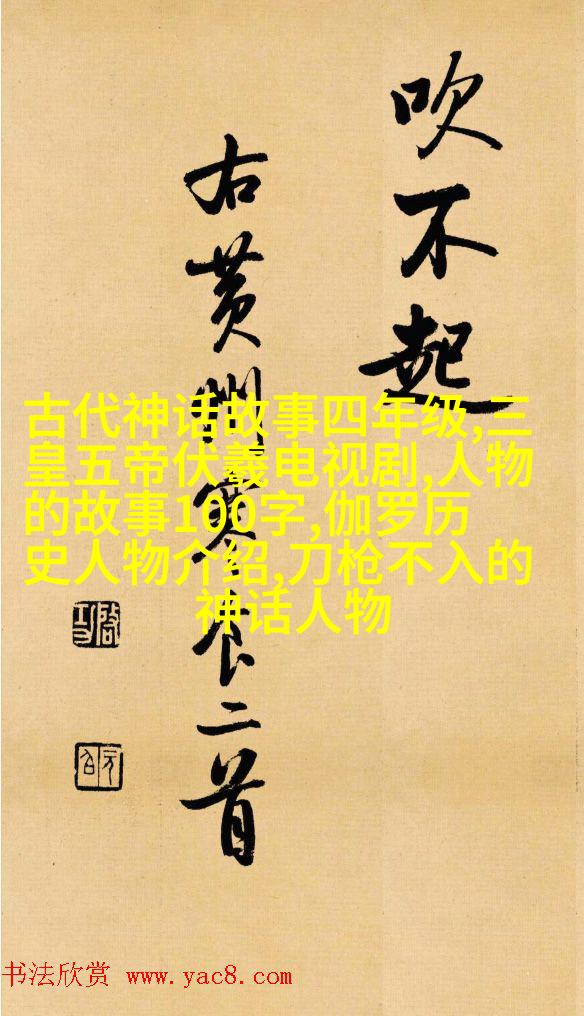 吹不起
右黄州寒食二首
古代神话故事四年级,三
皇五帝伏羲电视剧,人物
的故事100字,伽罗历
史人物介绍,刀枪不入的
神话人物
启功
元白
书法欣赏 www.yac8.com